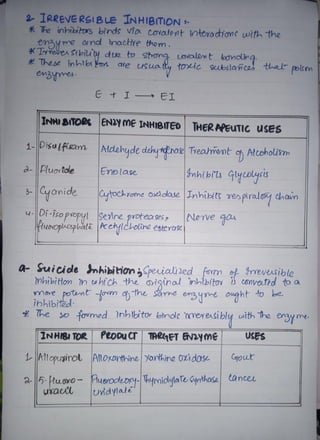 2. IRREVERSIBLE INHIBITION :-
* The inhibitors binds via covalent interactions with the
enzyme and inactive them.
* Irreversibility due to strong covalent bonding.
* These Inhibitors are usually toxic substances that poison
enzymes.
E + I → EI
INHIBITORS ENZYME INHIBITED THERAPEUTIC USES
1- Disulfiram Aldehyde dehydrogenase Treatment of Alcoholism
2- Fluoride Enolase Inhibits Glycolysis
3- Cyanide Cytochrome oxidase Inhibits respiratory chain
4- Di-isopropyl Serine proteases, Nerve gas
fluorophosphate Acetylcholine esterase
a- Suicide Inhibition; Specialised form of Irreversible
Inhibition in which the original inhibitor is converted to a
more potent form of the same enzyme ought to be
inhibited.
* The so formed Inhibitor binds irreversibly with the enzyme.
INHIBITOR PRODUCT TARGET ENZYME USES
1. Allopurinol Alloxanthine Xanthine oxidase Gout
2. 5-fluoro- Fluorodeoxy- Thymidylate Synthase Cancer
uracil uridylate